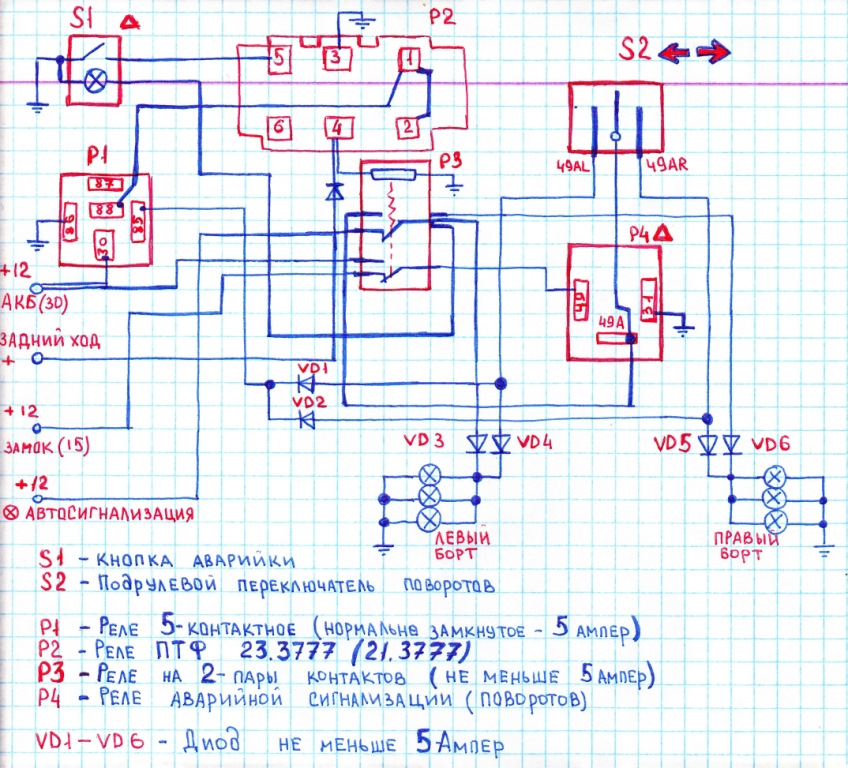 S1 Δ
P2
S2
5 3 1
6 4 2
P1
87
88
86 85
30
P3
49AL 49AR
P4 Δ
49 31
49A
+12
АКБ(30)
ЗАДНИЙ ХОД
+
VD1
VD2
+12
ЗАМОК (15)
VD3 VD4 VD5 VD6
+12
АВТОСИГНАЛИЗАЦИЯ
ЛЕВЫЙ
БОРТ
ПРАВЫЙ
БОРТ
S1 - КНОПКА АВАРИЙКИ
S2 - ПОДРУЛЕВОЙ ПЕРЕКЛЮЧАТЕЛЬ ПОВОРОТОВ
P1 - РЕЛЕ 5-КОНТАКТНОЕ (НОРМАЛЬНО ЗАМКНУТОЕ - 5 АМПЕР)
P2 - РЕЛЕ ПТФ 23.3777 (21.3777)
P3 - РЕЛЕ НА 2-ПАРЫ КОНТАКТОВ (НЕ МЕНЬШЕ 5 АМПЕР)
P4 - РЕЛЕ АВАРИЙНОЙ СИГНАЛИЗАЦИИ (ПОВОРОТОВ)
VD1-VD6 - ДИОД НЕ МЕНЬШЕ 5 АМПЕР